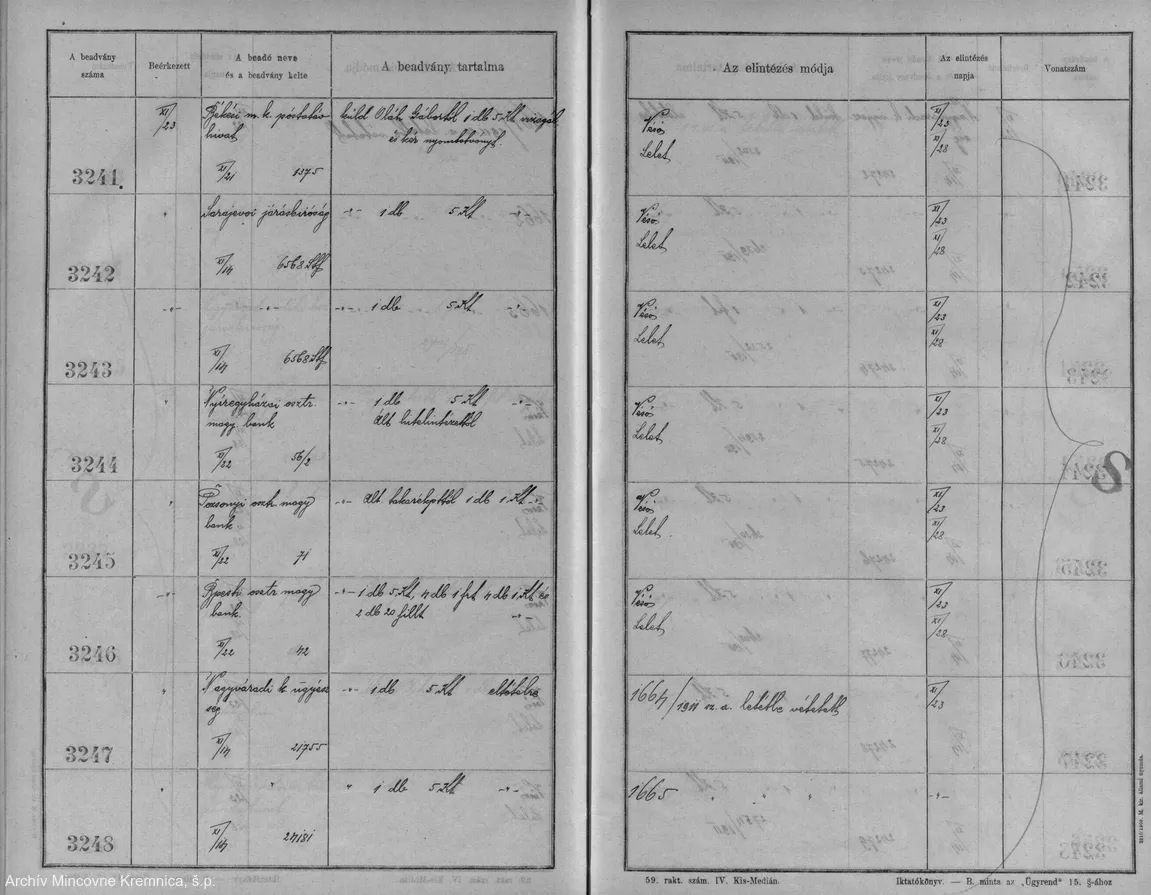 A beadvány száma
Beérkezett
A beadó neve és a beadvány kelte
A beadvány tartalma
Az elintézés módja
Az elintézés napja
Vonatszám
3241
XI/23
Békési m. k. postatás
hivat
küld Oláh Gábortól 1 db 5 Kt vizsgál
és kér nyomtatványt.
XI/21 1375
Véső XI/23
Lelet XI/28
3242
"
Sarajevoi járásbíróság
-"- 1 db 5 Kt -"-
XI/14 6568
Véső XI/23
Lelet XI/28
3243
-"- -"-
-"- 1 db 5 Kt -"-
XI/14 6568
Véső XI/23
Lelet XI/28
3244
"
Nyíregyházai osztr.
magy bank
-"- 1 db 5 Kt -"-
Ált hitelintézettől
XI/22 56/2
Véső XI/23
Lelet XI/28
3245
"
Pozsonyi osztr magy
bank
-"- Ált. takarékpttól 1 db 1 Kt -"-
XI/22 71
Véső XI/23
Lelet XI/28
3246
-"-
Bpesti osztr magy
bank
-"- 1 db 5 Kt, 4 db 1 frt 4 db 1 Kt és
2 db 20 fillt -"-
XI/22 42
Véső XI/23
Lelet XI/28
3247
"
Nagyváradi k. ügyész
ség
-"- 1 db 5 Kt
XI/14 21755
1664/1911 sz. a. letétbe vétetett XI/23
3248
" "
" 1 db 5 Kt -"-
XI/14 24181
1665 " " " -"-
8
59. rakt. szám. IV. Kis-Medián.
Iktatókönyv. — B. minta az „Ügyrend" 15. §-ához
Archív Mincovne Kremnica, š.p.